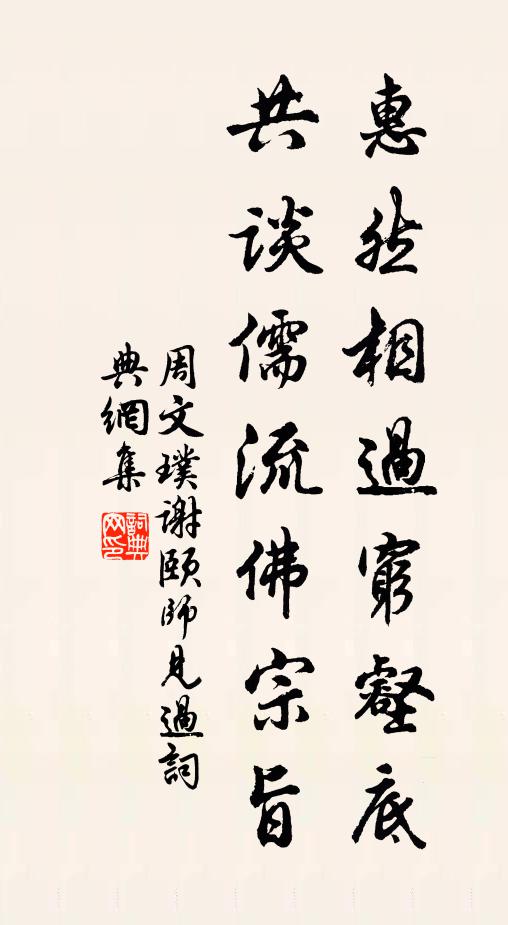 惠然相過窮壑底
共談儒流佛宗旨
周文璞謝頤師見過詞
典網集
詞典
网印